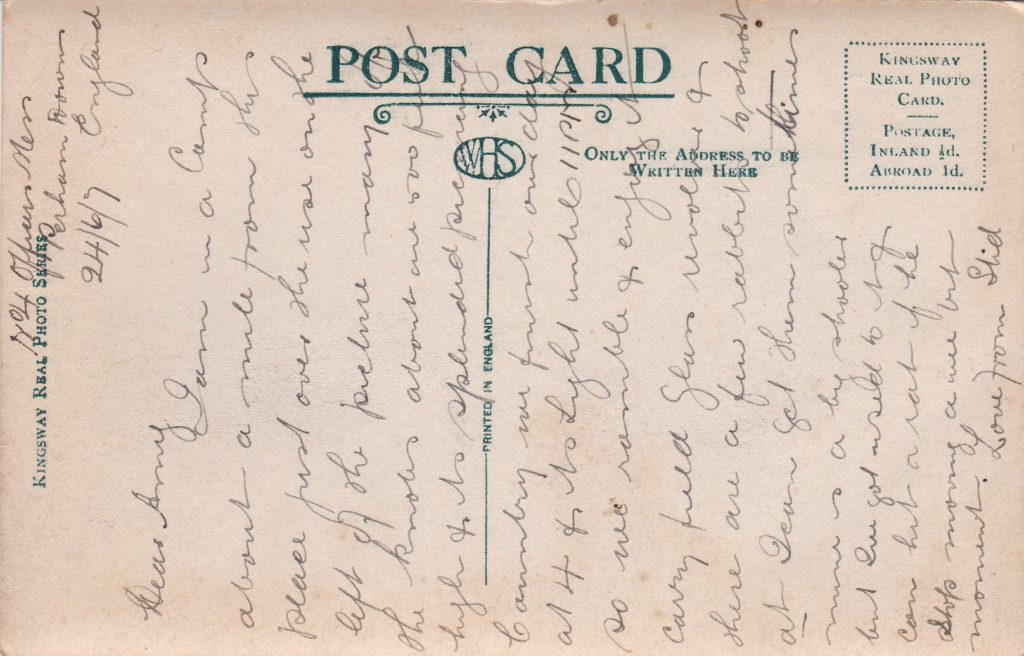 POST CARD
KINGSWAY
REAL PHOTO
CARD.
POSTAGE,
INLAND ½d.
ABROAD 1d.
WHS
ONLY THE ADDRESS TO BE
WRITTEN HERE
PRINTED IN ENGLAND
KINGSWAY REAL PHOTO SERIES
Officers Mess
Perham Down
England
24/6/7
Dear Amy
I am in a Camp
about a mile from this
place just over the rise on the
left of the picture many of
the knobs about are 500 feet
high & its splendid
Country we finish our day
at 4 & its Light until 11 PM
so we ramble & enjoy it
carry field Glass revolver &
there are a few rabbits to shoot
at I can get them sometimes
mine is a big shooter
but Ive got used to it &
can hit a rat if he
stops moving a wee bit
moment. Love from Sid